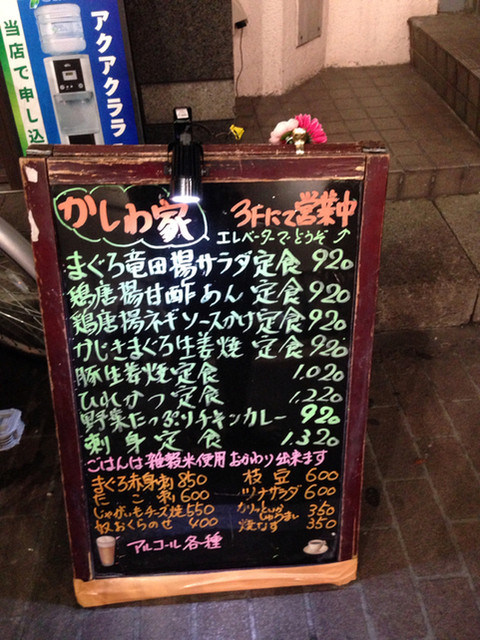 アクアクララ
当店で申し込
かしわ家
3Fにて営業中
エレベーターでどうぞ↑
まぐろ竜田揚サラダ定食 920
鶏唐揚甘酢あん 定食 920
鶏唐揚ネギソースかけ定食 920
かじきまぐろ生姜焼 定食 920
豚生姜焼定食 1.020
ひれかつ定食 1.220
野菜たっぷりチキンカレー 920
刺身定食 1.320
ごはんは雑穀米使用おかわり出来ます
まぐろ赤身刺 850
たこ刺 600
じゃがいもチーズ焼 550
奴おくらのせ 400
枝豆 600
ツナサラダ 600
カリッといかじゅうまい 350
焼なす 350
アルコール各種